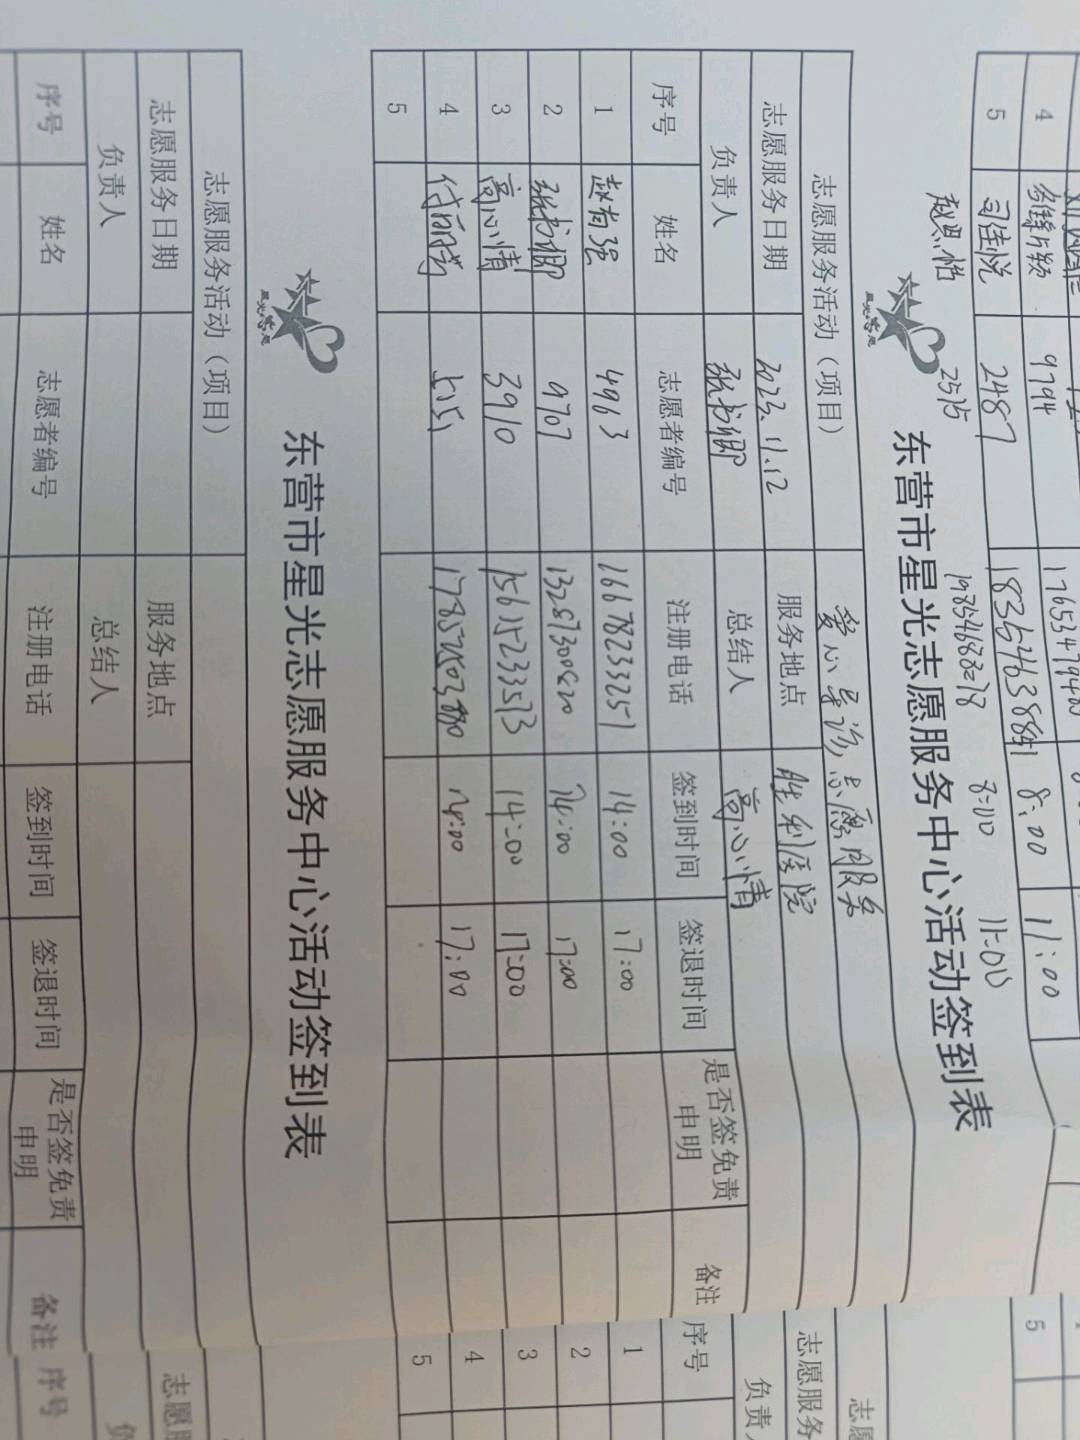 4 9794
5 司佳悦 2487 8:00 11:00
赵思怡 2515 8:00 11:00
星光志愿
东营市星光志愿服务中心活动签到表
志愿服务活动（项目） 爱心导诊志愿服务
志愿服务日期 2023.11.12 服务地点 胜利医院
负责人 总结人 高心情
序号 姓名 志愿者编号 注册电话 签到时间 签退时间 是否签免责申明 备注
1 赵有强 4963 16678233251 14:00 17:00
2 9707 14:00 17:00
3 高心情 3910 15615233513 14:00 17:00
4 14:00 17:00
5
星光志愿
东营市星光志愿服务中心活动签到表
志愿服务活动（项目）
志愿服务日期 服务地点
负责人 总结人
序号 姓名 志愿者编号 注册电话 签到时间 签退时间 是否签免责申明 备注
5
志愿
志愿服务
负责人
序号
1
2
3
4
5
志愿服
负
序号